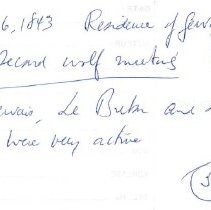 6, 1843 Residence of Gerv
Second wolf meeting
ervais, Le Breton and
were very active